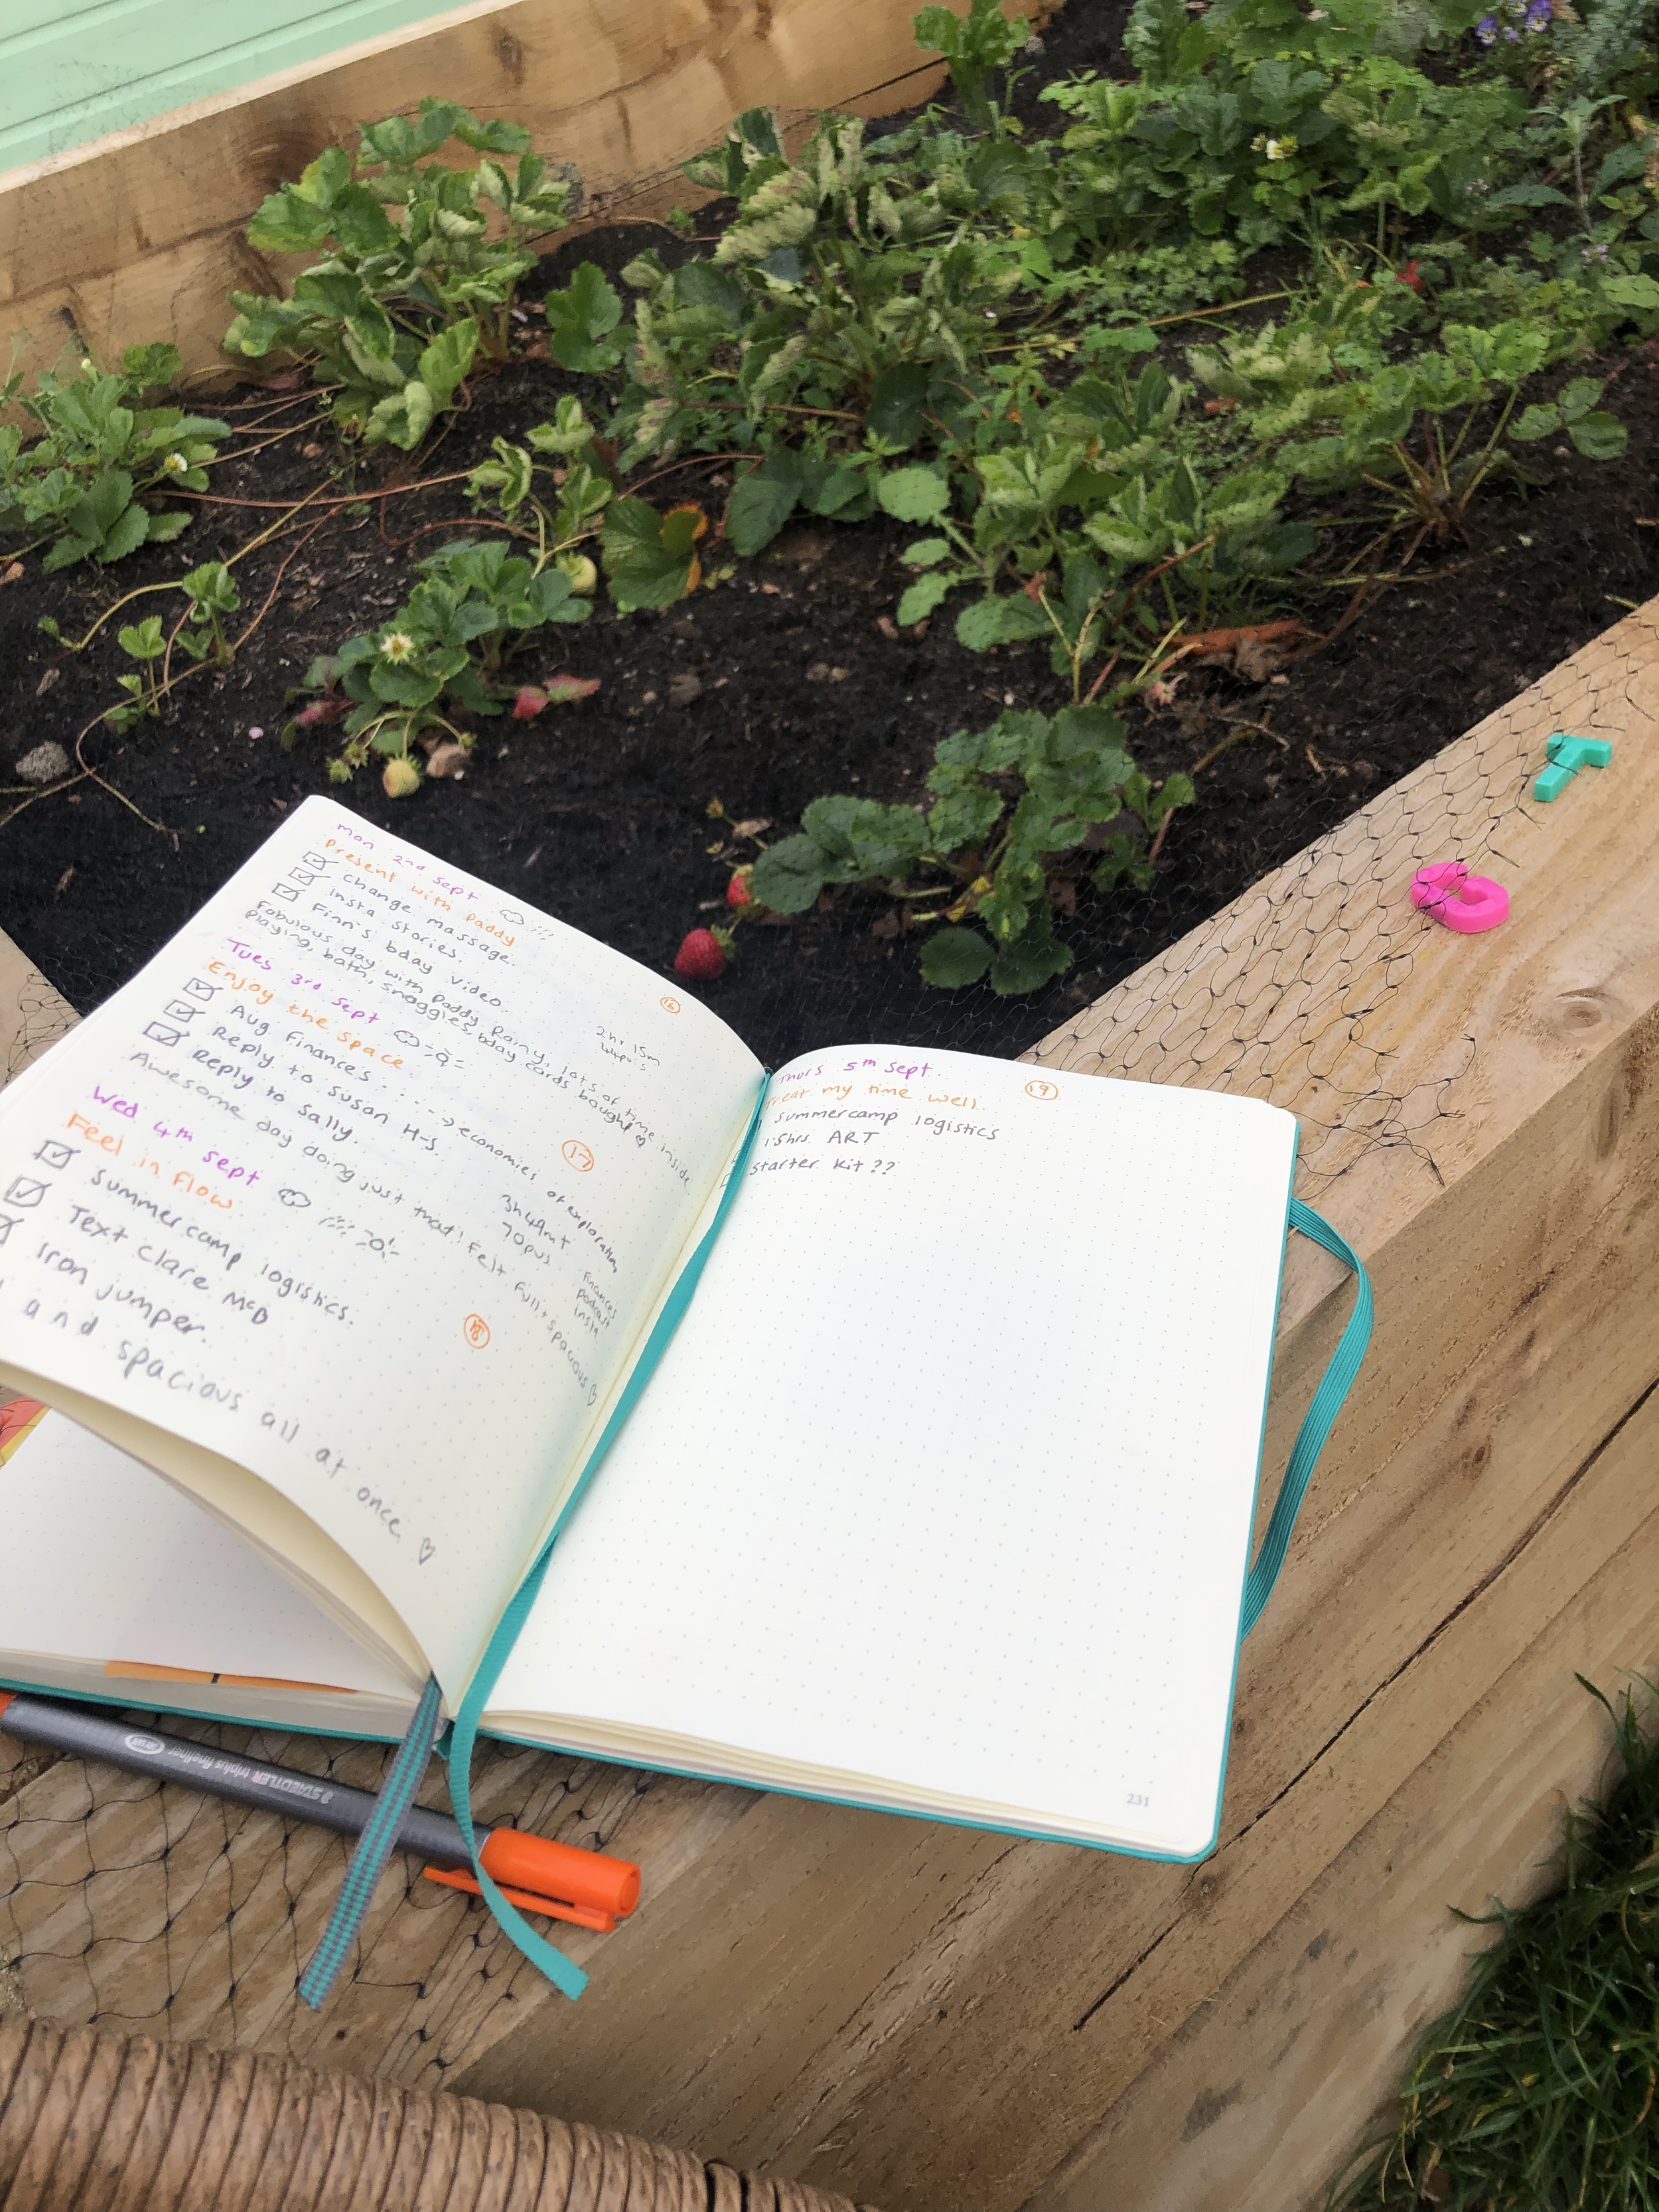 Mon 2nd Sept
Present with Paddy
Change massage.
insta stories.
Finn's bday video.
Fabulous day with Paddy. Rainy, lots of time inside
playing, bath, snaggles, bday cards bought
16
2hr 15m
Tues 3rd Sept
Enjoy the space
Aug. Finances
Reply to Susan H-S.
Reply to Sally.
economies of exploration
17
3h 49m
70pus
Finances
podcast
insta
Awesome day doing just that! Felt full + spacious
Wed 4th Sept
Feel in flow.
Summercamp logistics.
Text Clare McD
Iron jumper.
18
and spacious all at once
Thurs 5th Sept.
Treat my time well.
19
Summercamp logistics
1.5hrs ART
Starter kit??
231
STAEDTLER triplus fineliner
T